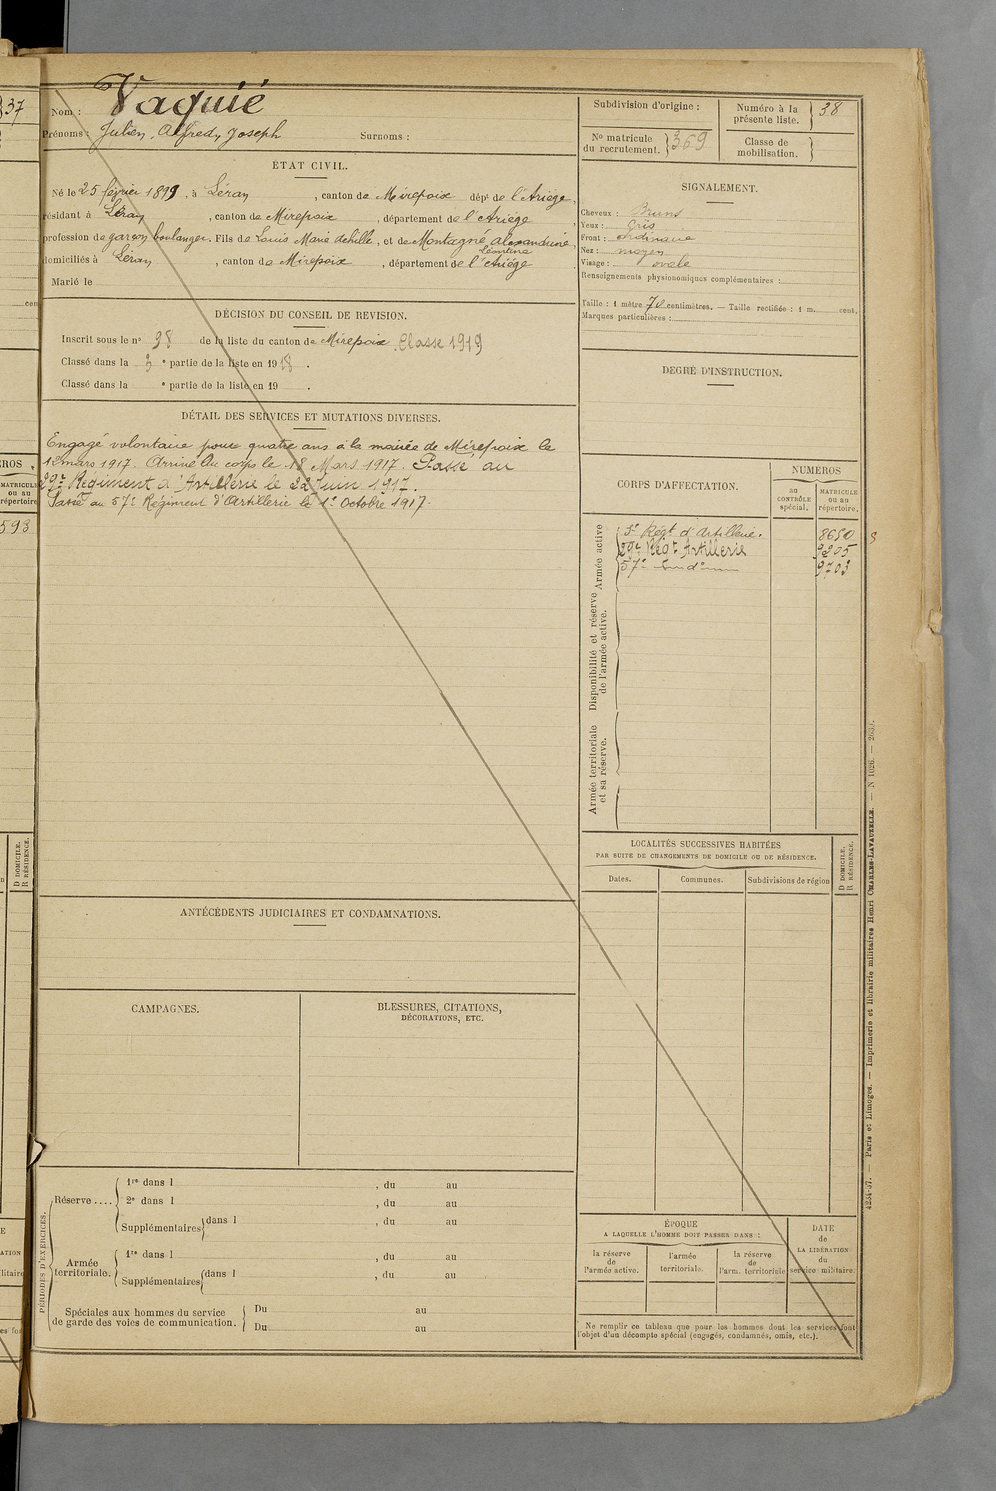 37
Nom : Vaquié
Prénoms : Julien, Alfred, Joseph Surnoms :
ÉTAT CIVIL.
Né le 25 février 1899, à Léran, canton de Mirepoix dépt de l'Ariège,
résidant à Léran, canton de Mirepoix, département de l'Ariège
profession de garçon boulanger. Fils de Louis Marie Achille, et de Montagné Alexandrine,
Léontine
domiciliés à Léran, canton de Mirepoix, département de l'Ariège
Marié le
DÉCISION DU CONSEIL DE REVISION.
Inscrit sous le no 38 de la liste du canton de Mirepoix Classe 1919
Classé dans la 3 e partie de la liste en 1918.
Classé dans la e partie de la liste en 19 .
DÉTAIL DES SERVICES ET MUTATIONS DIVERSES.
Engagé volontaire pour quatre ans à la mairie de Mirepoix le
12 mars 1917. Arrivé au corps le 18 Mars 1917. Passé au
29e Régiment d'Artillerie le 22 Juin 1917.
Passé au 57e Régiment d'Artillerie le 1e Octobre 1917.
ANTÉCÉDENTS JUDICIAIRES ET CONDAMNATIONS.
CAMPAGNES.
BLESSURES, CITATIONS,
DÉCORATIONS, ETC.
PÉRIODES D'EXERCICES.
Réserve ....
1re dans l , du au
2e dans l , du au
Supplémentaires dans l , du au
Armée
territoriale.
1re dans l , du au
Supplémentaires dans l , du au
Spéciales aux hommes du service
de garde des voies de communication.
Du au
Du au
Subdivision d'origine :
Numéro à la
présente liste. 38
No matricule
du recrutement. 369
Classe de
mobilisation.
SIGNALEMENT.
Cheveux : Bruns
Yeux : Gris
Front : ordinaire
Nez : moyen
Visage : ovale
Renseignements physionomiques complémentaires :
Taille : 1 mètre 70 centimètres. — Taille rectifiée : 1 m. cent.
Marques particulières :
DEGRÉ D'INSTRUCTION.
CORPS D'AFFECTATION.
NUMEROS
au
CONTRÔLE
spécial.
MATRICULE
ou au
répertoire.
Armée active
3e Régt d'Artillerie. 8650
29e Régt Artillerie 9205
57e d° 9703
Disponibilité et réserve
de l'armée active.
Armée territoriale
et sa réserve.
LOCALITÉS SUCCESSIVES HABITÉES
PAR SUITE DE CHANGEMENTS DE DOMICILE OU DE RÉSIDENCE.
D DOMICILE.
R RÉSIDENCE.
Dates. Communes. Subdivisions de région
ÉPOQUE
A LAQUELLE L'HOMME DOIT PASSER DANS :
la réserve
de
l'armée active.
l'armée
territoriale.
la réserve
de
l'arm. territoriale
DATE
de
LA LIBÉRATION
du
service militaire.
Ne remplir ce tableau que pour les hommes dont les services font
l'objet d'un décompte spécial (engagés, condamnés, omis, etc.).
4234-37. — Paris et Limoges. — Imprimerie et librairie militaires Henri CHARLES-LAVAUZELLE. — N 1026.
MATRICULE
ou au
répertoire
593
D DOMICILE.
R RÉSIDENCE.